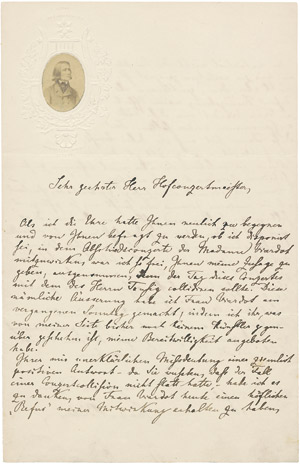 Sehr geehrter Herr Hofconzertmeister,
Als ich die Ehre hatte Ihnen neulich zu begegnen
und von Ihnen befragt zu werden, ob ich disponirt
sei, in dem Abschiedsconcerte der Madame Viardot
mitzuwirken, war ich so frei, Ihnen meine Zusage zu
geben, ausgenommen, denn der Tag dieses Conzertes
mit dem des Herrn Tausig collidiren sollte. Diese
nämliche Äusserung habe ich Frau Viardot am
vergangenen Sonntag gemacht, indem ich ihr, was
von meiner Seite bisher noch keinem Künstler gegen-
über geschehen ist, meine Bereitwilligkeit angeboten
habe.
Ihrer mir unerklärlichen Mißdeutung einer ziemlich
positiven Antwort - da Sie wußten, daß der Fall
einer Conzertcollision nicht statt hatte, - habe ich es
zu danken, von Frau Viardot heute einen höflichen
"Refus" meiner Mitwirkung erhalten zu haben,